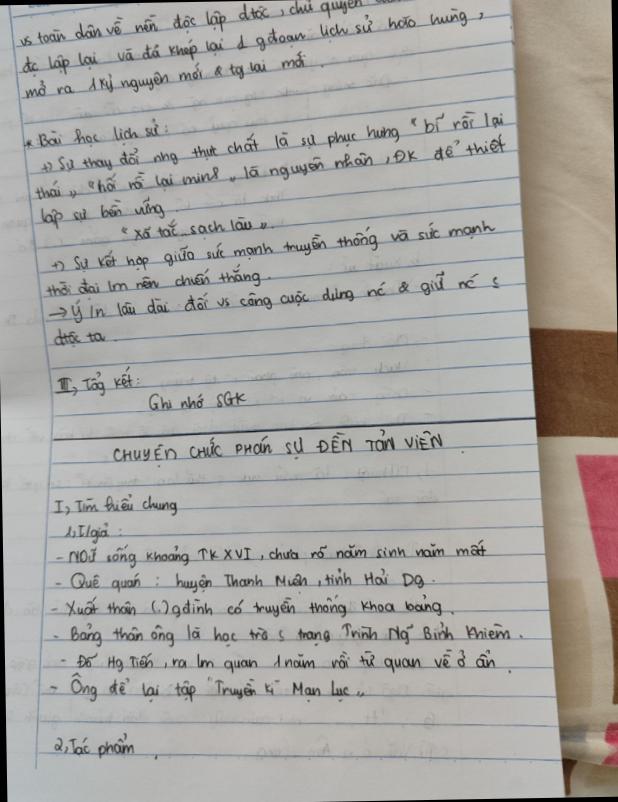 vs toàn dân về nền độc lập dtộc, chủ quyền
đc lập lại và đã khép lại 1 gđoạn lịch sử hào hùng,
mở ra 1 kỷ nguyên mới & tg lai mới.
* Bài học lịch sử:
+) Sự thay đổi nhg thực chất là sự phục hưng "bĩ rồi lại
thái", "hối rồi lại minh" là nguyên nhân, ĐK để thiết
lập sự bền vững
"Xã tắc sạch lâu".
+) Sự kết hợp giữa sức mạnh truyền thống và sức mạnh
thời đại lm nên chiến thắng.
→ Ý lâu dài đối vs công cuộc dựng nc & giữ nc
dtộc ta.
III, Tổg kết:
Ghi nhớ SGK
CHUYỆN CHỨC PHÁN SỰ ĐỀN TẢN VIÊN
I, Tìm hiểu chung
1, T/giả:
- sống khoảng TK XVI, chưa rõ năm sinh năm mất
- Quê quán: huyện Thanh Miện, tỉnh Hải Dg.
- Xuất thân (.) gđình có truyền thống khoa bảng.
- Bảng thân ông là học trò trạng Trình Ng Bỉnh Khiêm.
- Đỗ Hg Tiến, ra lm quan 1 năm rồi từ quan về ở ẩn.
- Ông để lại tập "Truyền kì Mạn Lục"
2, Tác phẩm